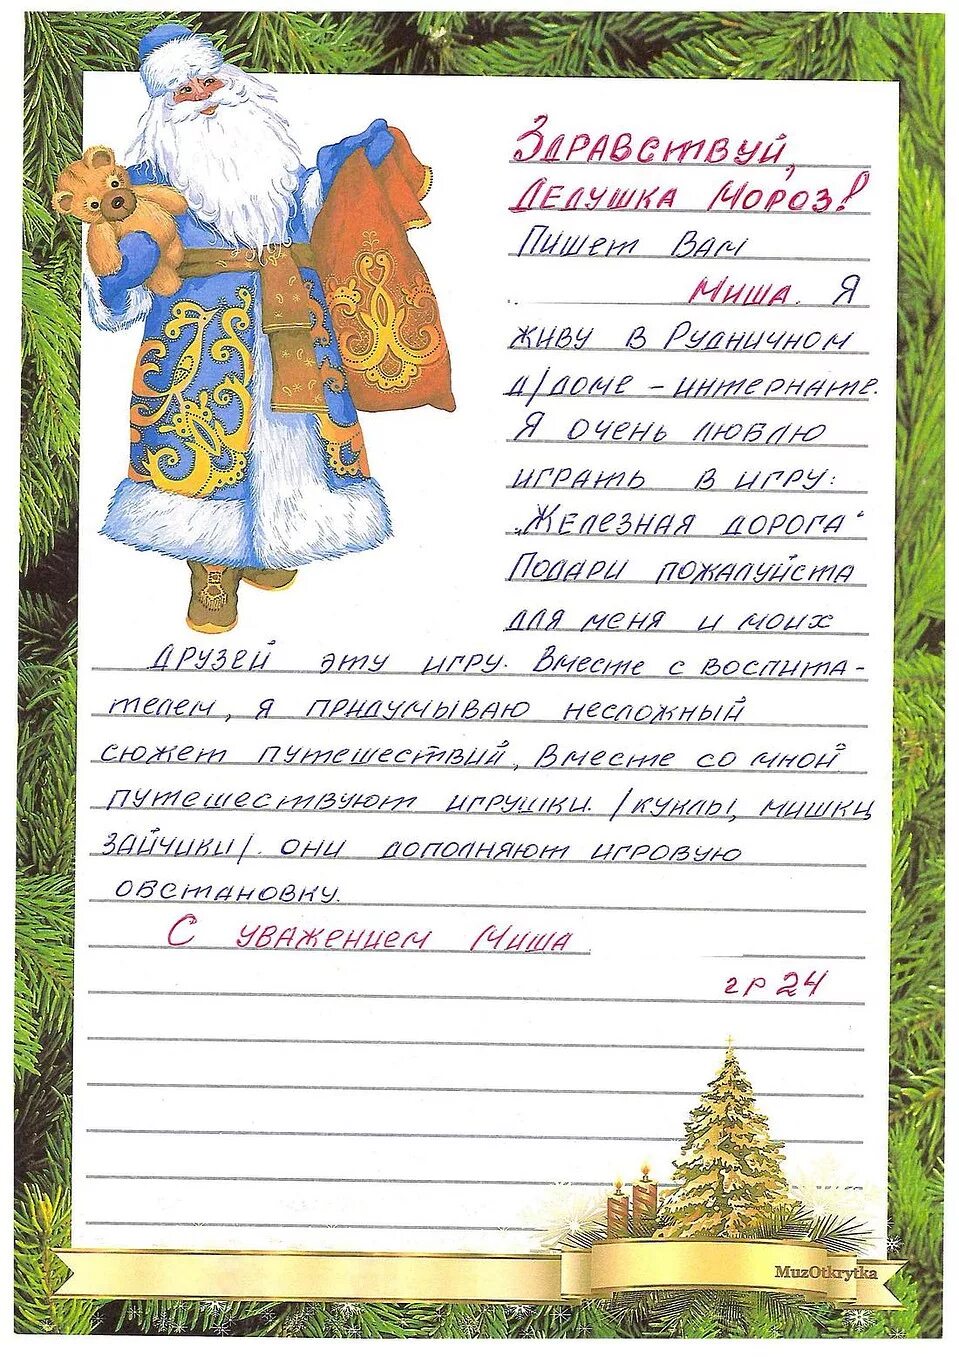 Здравствуй,
Дедушка Мороз!
Пишет Вам
Миша. Я
живу в Рудничном
д/доме - интернате.
Я очень люблю
играть в игру:
„Железная дорога“
Подари пожалуйста
для меня и моих
друзей эту игру. Вместе с воспита-
телем, я придумываю несложный
сюжет путешествий, Вместе со мной
путешествуют игрушки. /куклы, мишки,
зайчики/. они дополняют игровую
обстановку.
С уважением Миша
гр 24
MuzOtkrytka